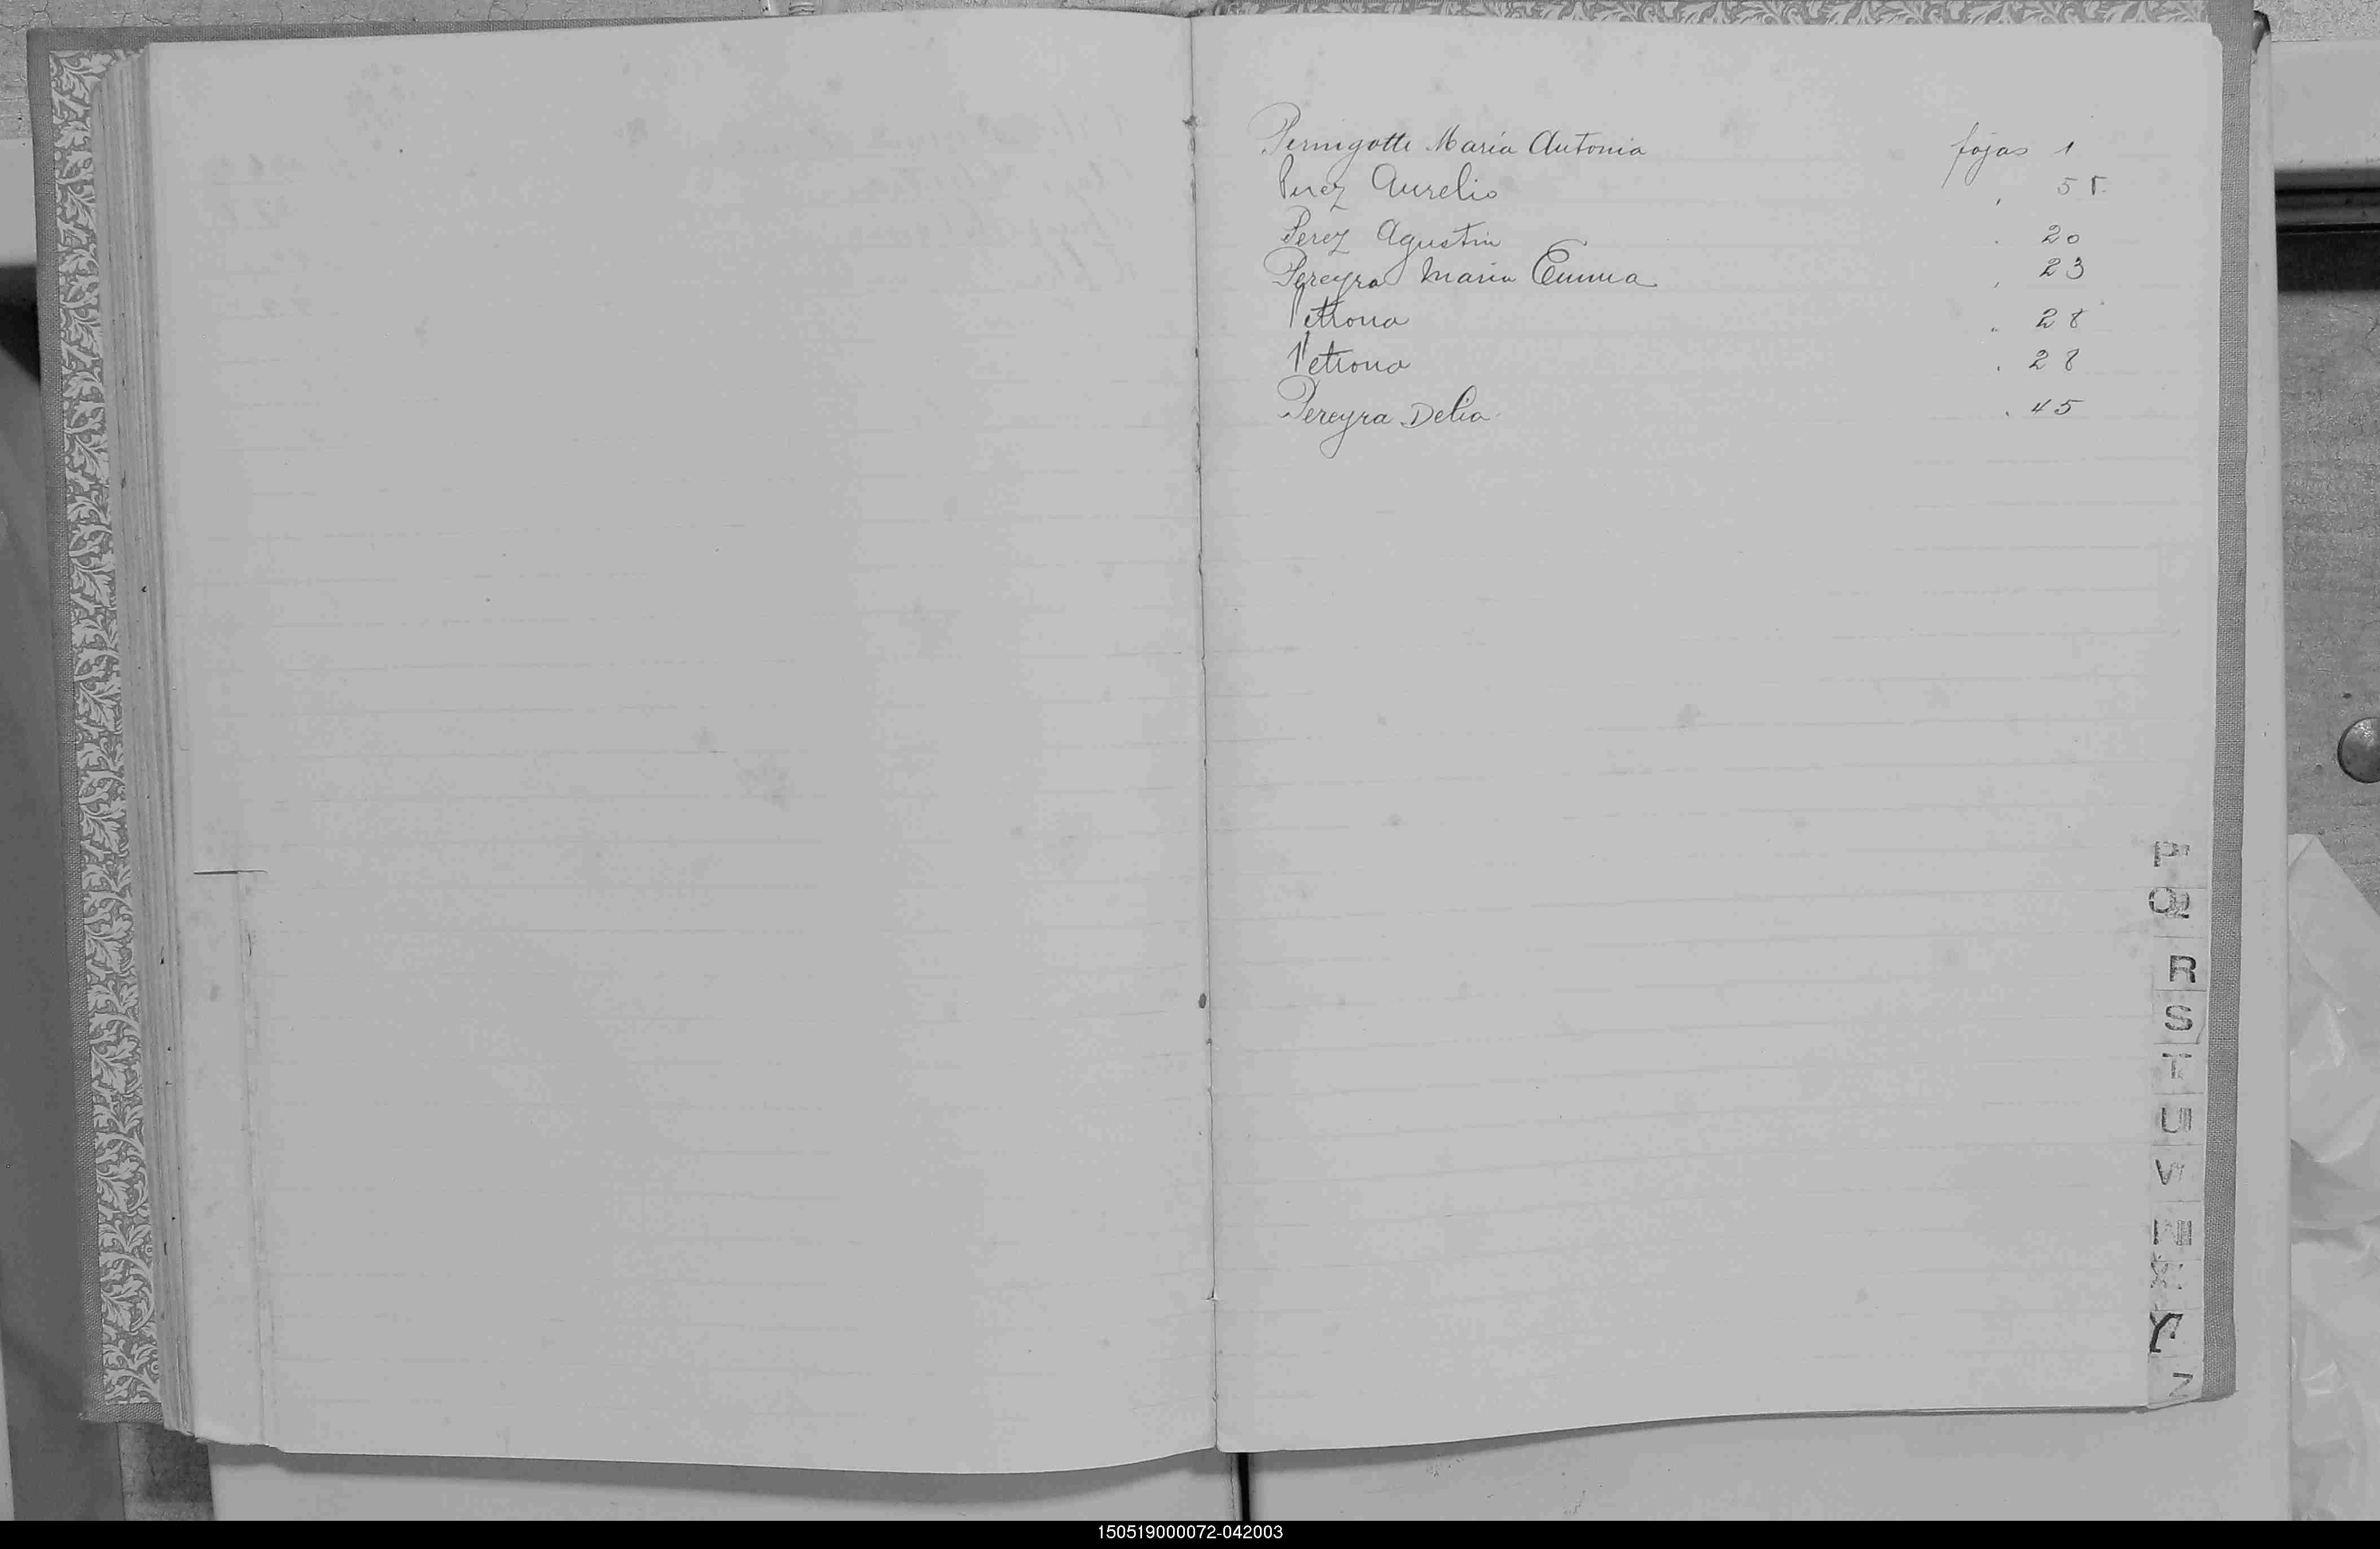 Pernigotti María Antonia fojas 1
Perez Aurelio , 5 r.
Perez Agustin . 20
Pereyra Maria Emma , 23
Petrona „ 28
Petrona . 28
Pereyra Delia . 45
P
Q
R
S
T
U
V
X
Y
Z
150519000072-042003